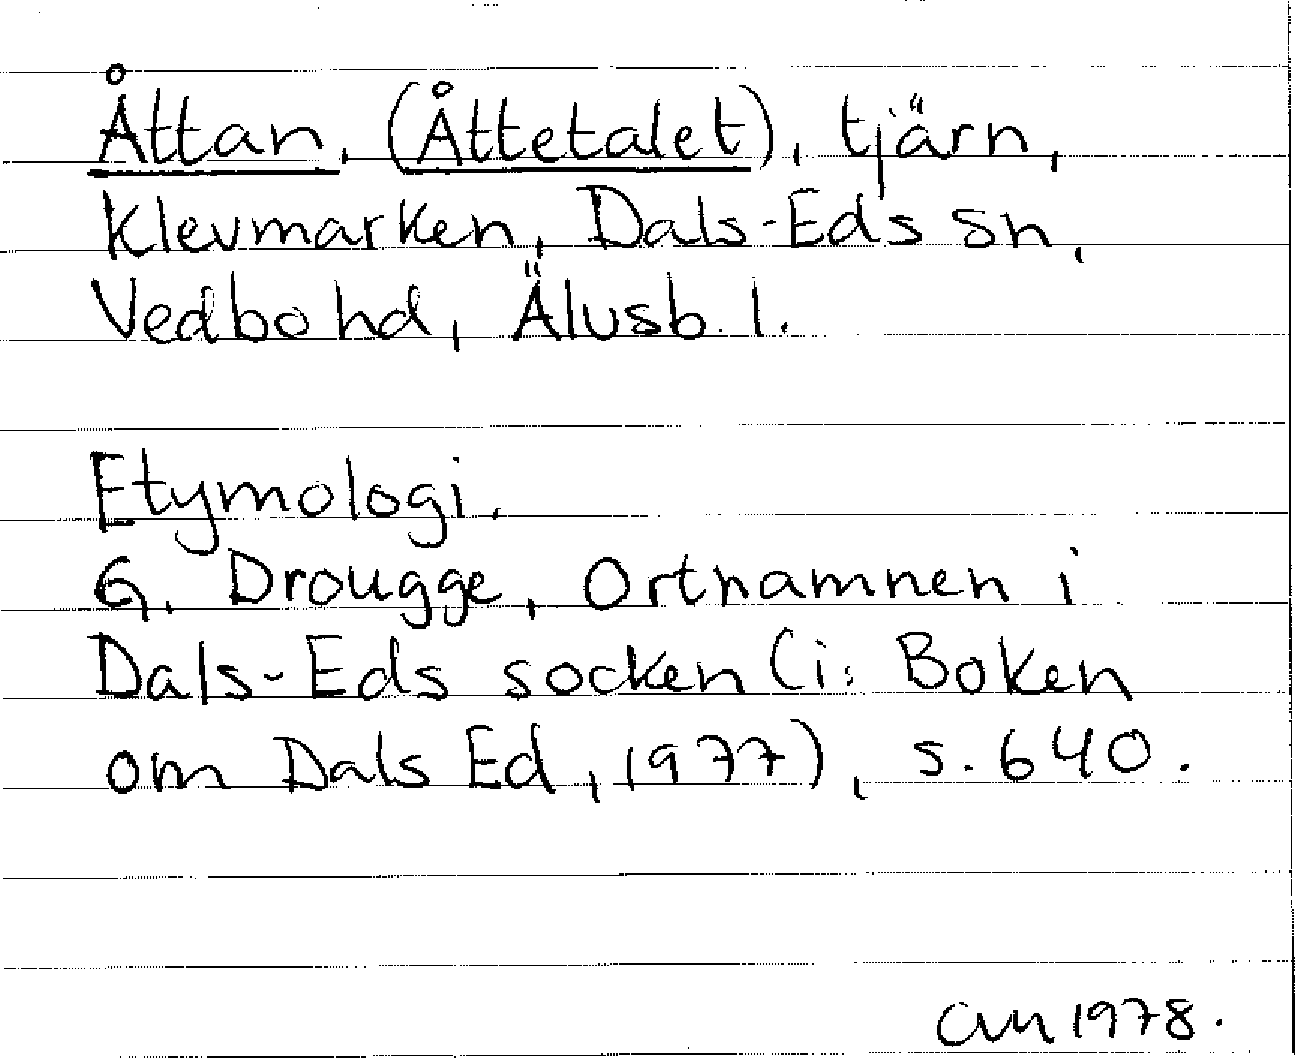 Åttan, (Åttetalet), tjärn,
Klevmarken, Dals-Eds sn,
Vedbo hd, Älvsb. l.
Etymologi.
G. Drougge, Ortnamnen i
Dals-Eds socken (i: Boken
om Dals Ed, 1977), s. 640.
1978.